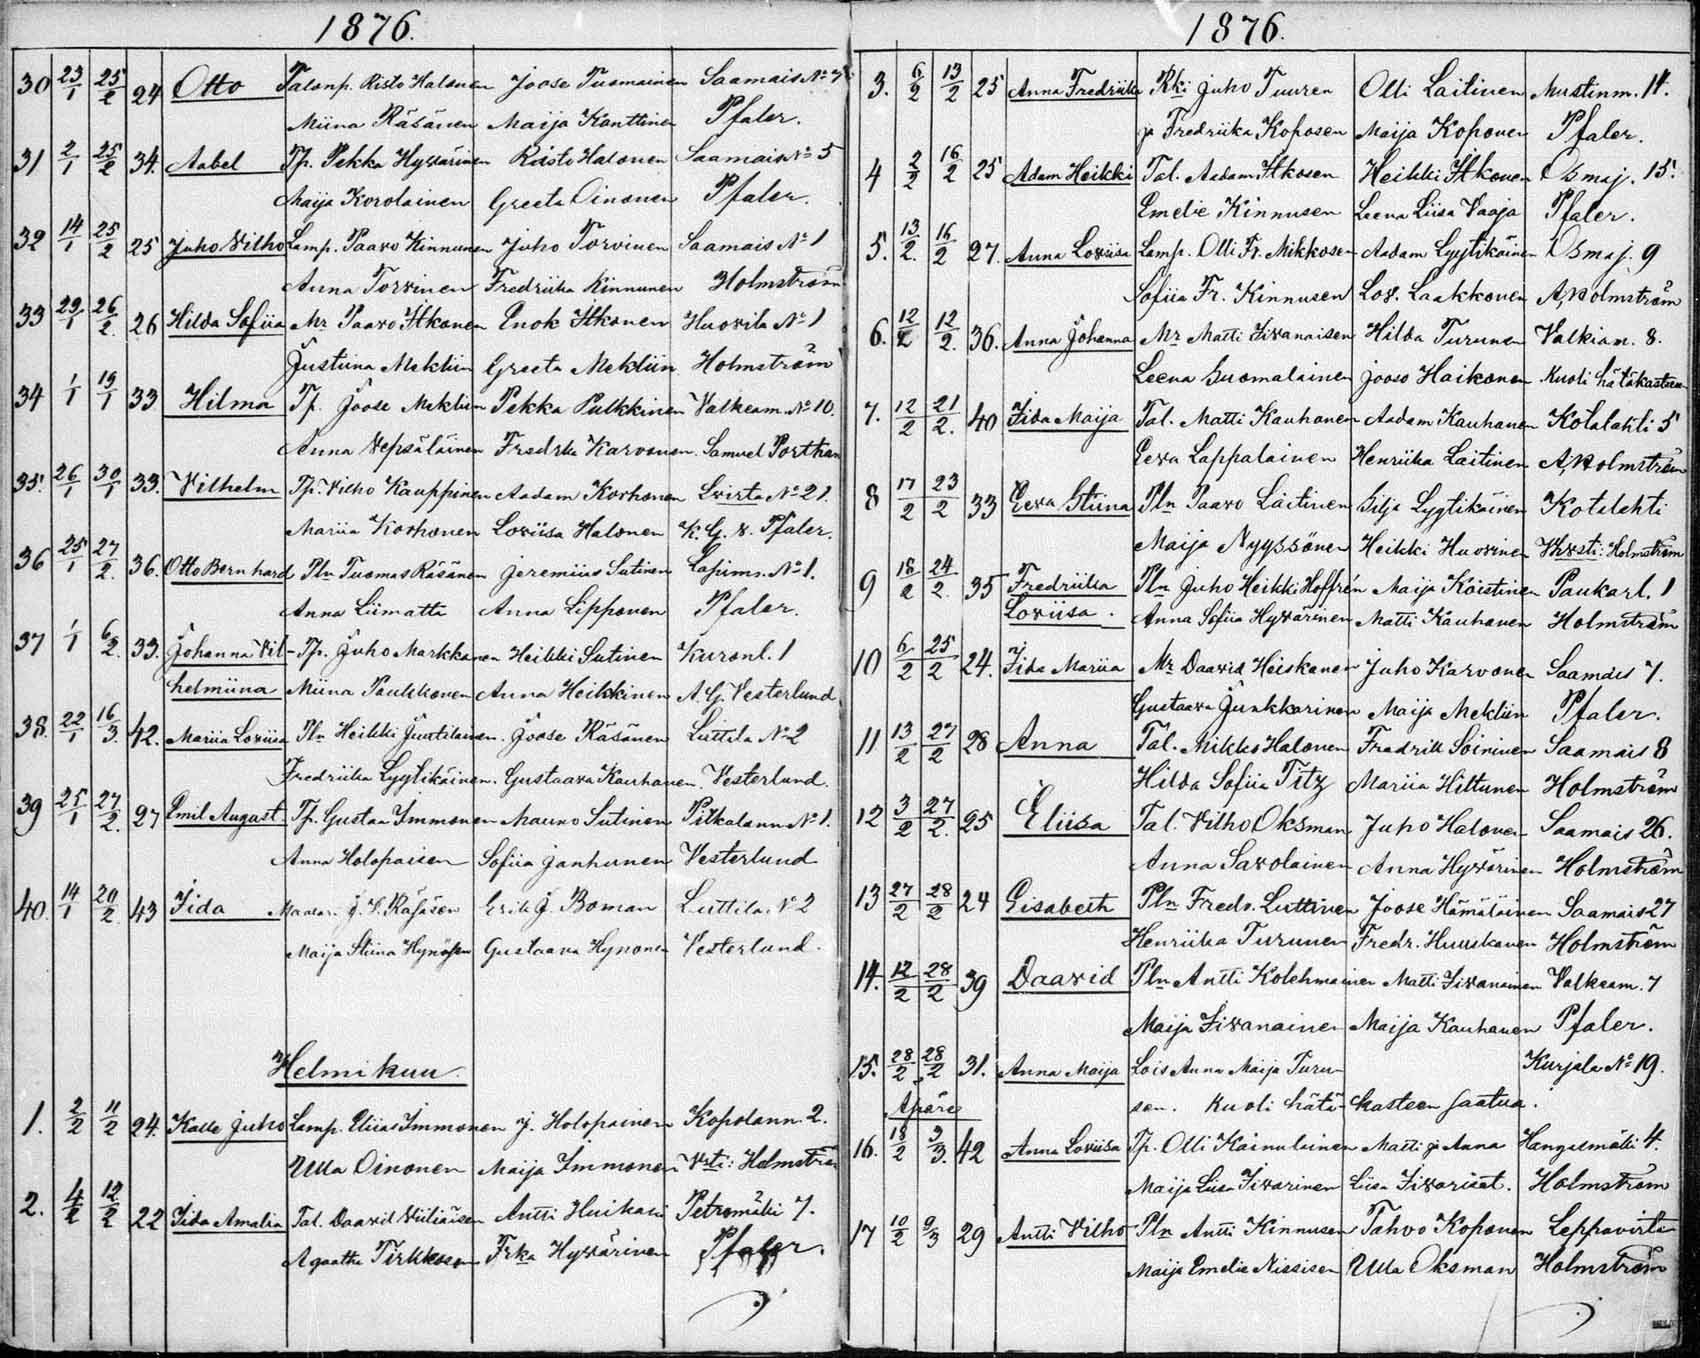 1876.
30 23/1 25/2 24 Otto Talonp. Risto Halonen Joose Tuomainen Saamais No 7
Miina Räsänen Maija Kanttinen Pfaler.
31 2/1 25/2 34. Aabel Tp. Pekka Hyvärinen Risto Halonen Saamais No 5
Maija Korolainen Greeta Oinonen Pfaler.
32 14/1 25/2 25 Juho Vilho Lamp. Paavo Kinnunen Juho Torvinen Saamais No 1
Anna Torvinen Fredriika Kinnunen Holmström
33 29/1 26/2. 26 Hilda Sofiia Mr Paavo Itkonen Enok Itkonen Huovila No 1
Justiina Mekliin Greeta Mekliin Holmström
34 1/1 19/1 33 Hilma Tp. Joose Mekliin Pekka Pulkkinen Valkeam. No 10.
Anna Vepsäläinen Fredrka Karvonen. Samuel Porthan
35. 26/1 30/1 33. Vilhelm Tp. Vilho Kauppinen Aadam Korhonen Lvirta No 21.
Mariia Korhonen Loviisa Halonen K. G. v. Pfaler.
36 25/1 27/2. 36. Otto Bernhard Pln Tuomas Räsänen Jeremiias Sutinen Lapinm. No 1.
Anna Liimatta Anna Lipponen Pfaler.
37 1/1 6/2. 33. Johanna Vil- Tp. Juho Markkanen Heikki Sutinen Kuronl. 1
helmiina Miina Paukkonen Anna Heikkinen A. G. Vesterlund
38. 22/1 16/3. 42. Mariia Loviisa Pln Heikki Juutilainen. Joose Räsänen Luttila No 2
Fredriika Lyytikäinen. Gustaava Kauhanen. Vesterlund.
39 25/1 27/2. 27 Emil August Tp. Gustaa Immonen Mauno Sutinen Pitkalann No 1.
Anna Holopaisen Sofiia Janhunen Vesterlund
40. 14/1 20/2. 43 Iida J. V. Räsäsen Erik J. Boman Luttila. No 2
Maija Stiina Hynösen Gustaava Hynonen Vesterlund.
Helmikuu.
1. 2/2 11/2 24. Kalle Juho Lamp. Eliias Immonen J. Holopainen Kopolann. 2.
Ulla Oinonen Maija Immonen Vsti: Holmström
2. 4/2 12/2 22 Iida Amalia Tal. Daavid Väliäisen Antti Huikari Petromäki 7.
Agaatha Tirkkosen Frka Hyvärinen Pfaler.
1876.
3. 6/2 13/2 25 Anna Fredriika Rki Juho Tuuren Olli Laitinen Mustinm. 11.
ja Fredriika Koposen Maija Koponen Pfaler.
4 2/2 16/2 25 Adam Heikki Tal. Aadam Itkosen Heikki Itkonen Osmaj. 15.
Emelie Kinnusen Leena Liisa Vaaja Pfaler.
5. 13/2. 16/2 27. Anna Loviisa Lamp. Olli Fr. Mikkosen Aadam Lyytikäinen Osmaj. 9
Sofiia Fr. Kinnusen Lov. Laakkonen A, Holmström
6. 12/2 12/2. 36. Anna Johanna Mr Matti Iivanaisen Hilda Turunen Valkiam. 8.
Leena Suomalainen Jooso Haikonen Kuoli hätäkasteen
7. 12/2 21/2. 40 Iida Maija Tal. Matti Kauhanen Aadam Kauhanen Kotalahti 5
Eeva Lappalainen Henriika Laitinen A, Holmström
8 17/2 23/2 33 Eeva Stiina Pln Paavo Laitinen Silja Lyytikäinen Kotalahti
Maija Nyyssönen Heikki Huovinen Vhvsti: Holmström
9 18/2 24/2. 35 Fredriika Pln Juho Heikki Hoffrén Maija Koistinen Paukarl. 1
Loviisa. Anna Sofiia Hyvärinen Matti Kauhanen Holmström
10 6/2 25/2 24. Iida Mariia Mr Daavid Heiskanen Juho Karvonen Saamais 7.
Gustaava Junkkarinen Maija Mekliin Pfaler.
11 13/2 27/2 28 Anna Tal. Mikko Halonen Fredrik Soininen Saamais 8
Hilda Sofiia Titz Mariia Hiltunen Holmström
12 3/2 27/2. 25 Eliisa Tal. Vilho Oksman Juho Halonen Saamais 26.
Anna Savolainen Anna Hyvärinen Holmström
13 27/2 28/2 24 Eisabeth Pln Fredr. Luttinen Joose Hämäläinen Saamais 27
Henriika Turunen Fredr. Huuskonen Holmström
14. 12/2 28/2 39 Daavid Pln Antti Kolehmainen Matti Iivanainen Valkeam. 7
Maija Iivanainen Maija Kauhanen Pfaler.
15. 28/2 28/2 31. Anna Maija Lois Anna Maija Turu- Kurjala No 19.
Apärä sen. Kuoli hätä-kasteen saatua.
16. 18/2 3/3. 42 Anna Loviisa Tp. Olli Kainulainen Matti ja Anna Hangasmäki 4.
Maija Liisa Iivarinen Liisa Iivariset. Holmström
17 10/2 9/3 29 Antti Vilho Pln Antti Kinnusen Tahvo Koponen Leppavirta
Maija Emelie Nissisen Ulla Oksman Holmström